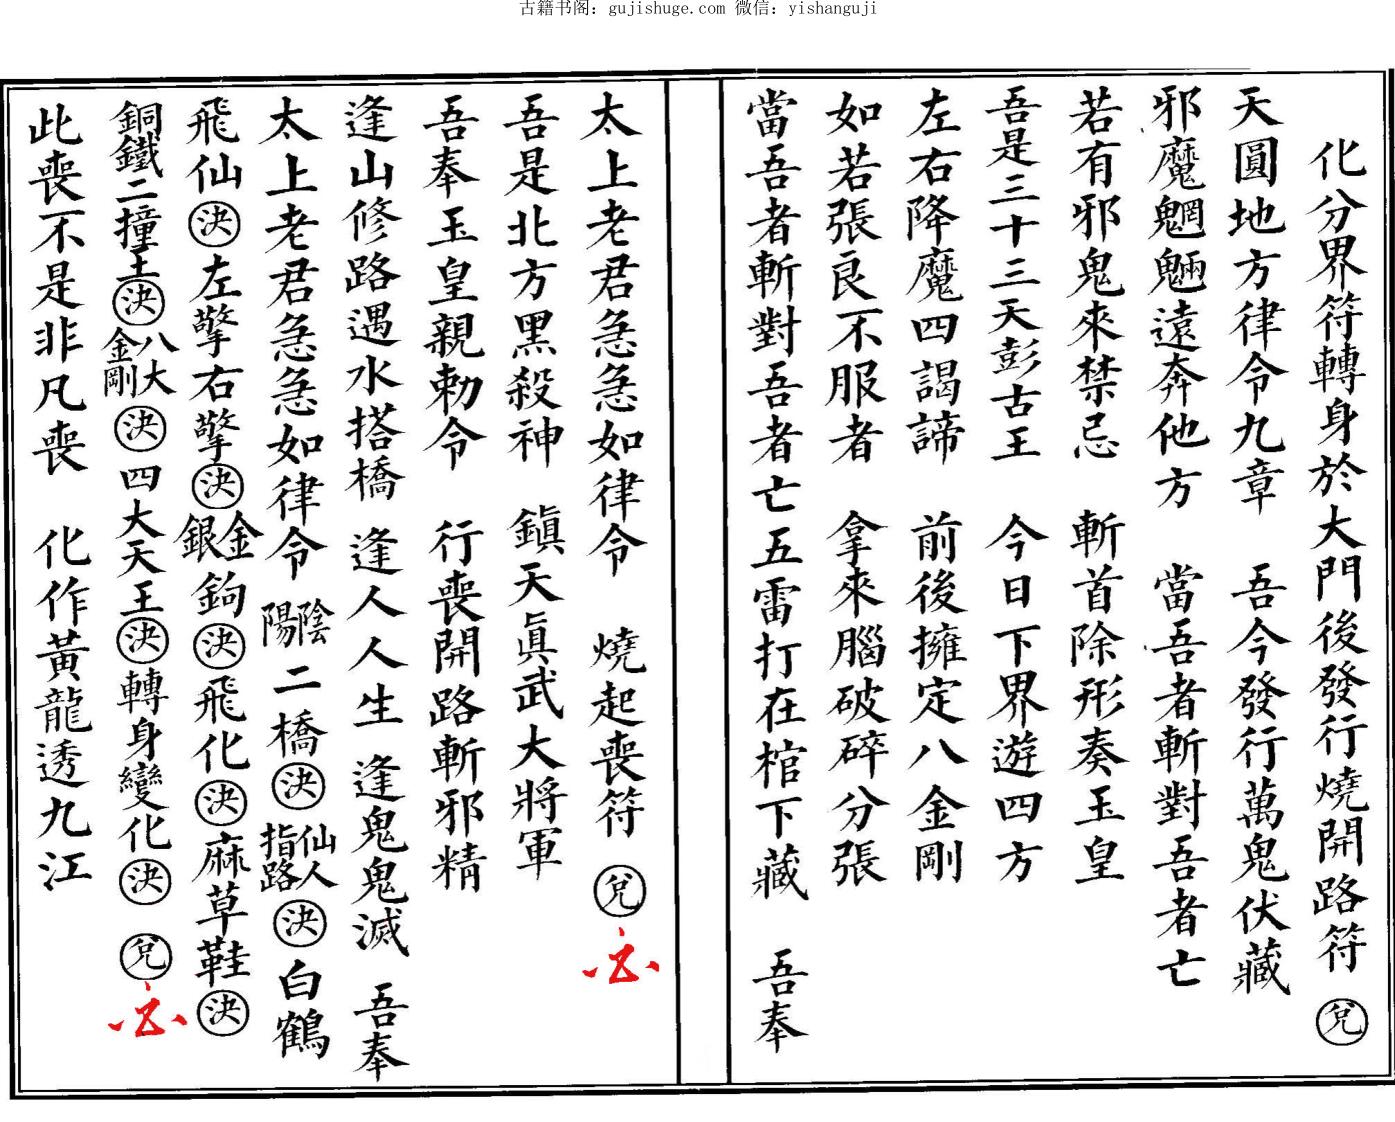 古籍书阁：gujishuge.com 微信：yishanguji
化分界符轉身於大門後發行燒開路符 兌
天圓地方律令九章 吾今發行萬鬼伏藏
邪魔魍魎遠奔他方 當吾者斬對吾者亡
若有邪鬼來禁忌 斬首除形奏玉皇
吾是三十三天彭古王 今日下界遊四方
左右降魔四謁諦 前後擁定八金剛
如若張良不服者 拿來腦破碎分張
當吾者斬對吾者亡五雷打在棺下藏 吾奉
太上老君急急如律令 燒起喪符 兌
吾是北方黑殺神 鎮天眞武大將軍
吾奉玉皇親勅令 行喪開路斬邪精
逢山修路遇水搭橋 逢人人生 逢鬼鬼滅 吾奉
太上老君急急如律令 陰陽二橋決仙人指路決白鶴
飛仙決左擎右擎決金銀鉤決飛化決麻草鞋決
銅鐵二撞土決八大金剛決四大天王決轉身變化決 兌
此喪不是非凡喪 化作黃龍透九江